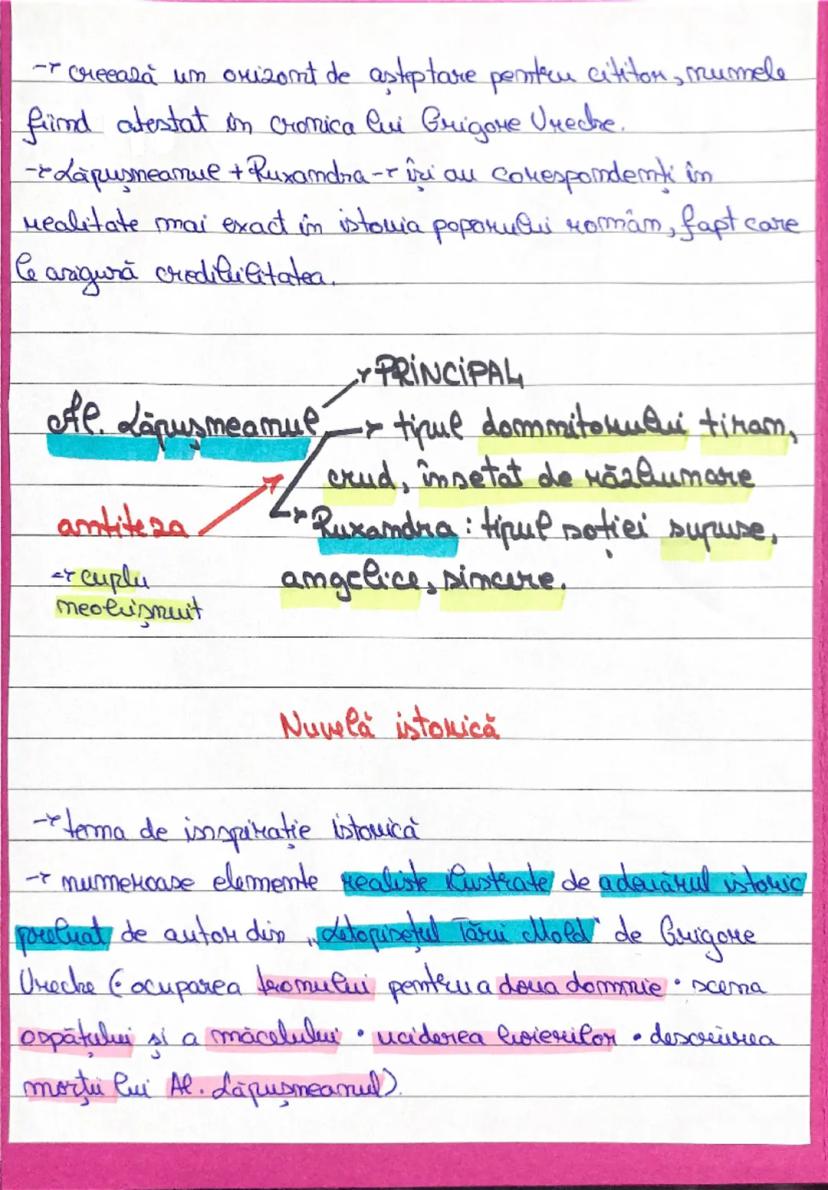 → creează un orizont de așteptare pentru cititor, numele
fiind atestat în cronica lui Grigore Ureche.
→ Lăpușneanul + Ruxandra → își au corespondenți în
realitate mai exact în istoria poporului român, fapt care
le asigură credibilitatea.
→ PRINCIPAL
Al. Lăpușneanul → tipul domnitorului tiran,
crud, însetat de răzbunare
antiteza → Ruxandra: tipul soției supuse,
→ cuplu angelice, sincere.
neobișnuit
Nuvelă istorică
→ tema de insspirație istorică
→ numeroase elemente realiste ilustrate de adevărul istoric
preluat de autor din „Letopisețul Țării Mold" de Grigore
Ureche (• ocuparea tronului pentru a doua domnie • scena
ospățului și a măcelului • uciderea boierilor • descrierea
morții lui Al. Lăpușneanul).